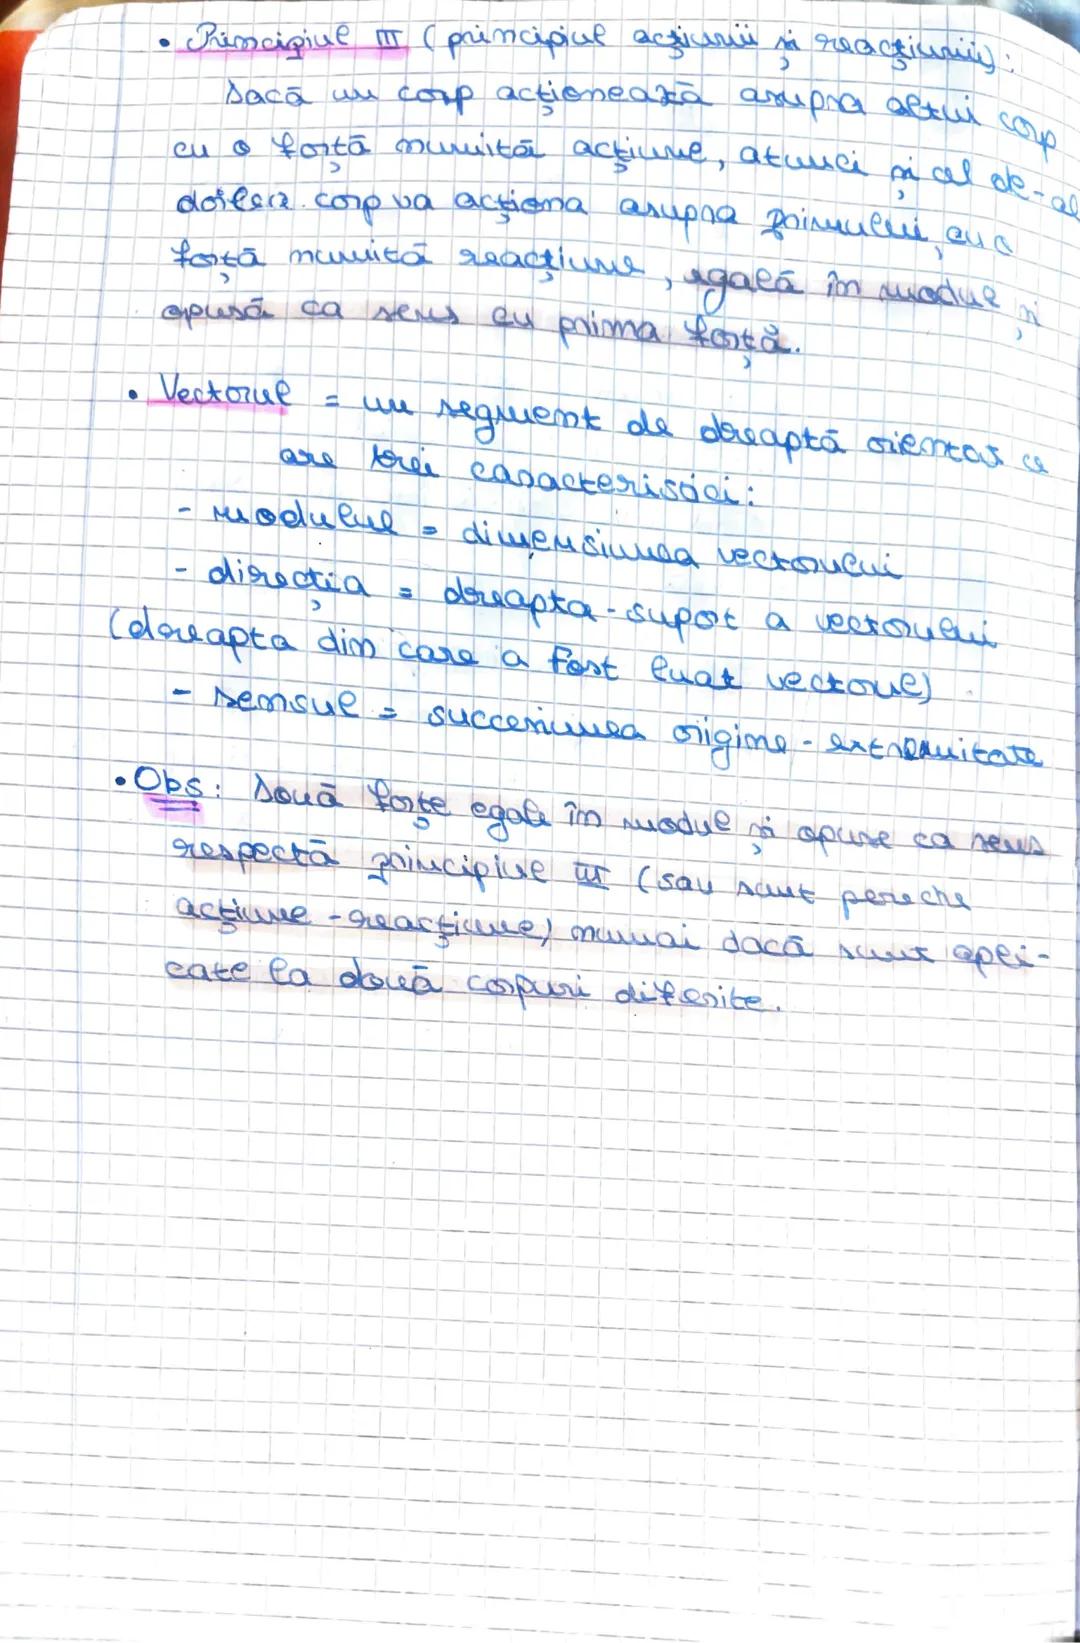 • Principiul III (principiul acțiunii și reacțiunii):
Dacă un corp acționează asupra altui corp
cu o forță numită acțiune, atunci și cel de-al
doilea corp va acționa asupra primului, cu o
forță numită reacțiune, egală în modul și
opusă ca sens cu prima forță.
• Vectorul = un segment de dreaptă orientat ce
are trei caracteristici:
- modulul = dimensiunea vectorului
- direcția = dreapta-suport a vectorului
(dreapta din care a fost luat vectorul)
- sensul = succesiunea origine - extremitate
• Obs: Două forțe egale în modul și opuse ca sens
respectă principiul III (sau sunt pereche
acțiune - reacțiune) numai dacă sunt apli-
cate la două corpuri diferite.